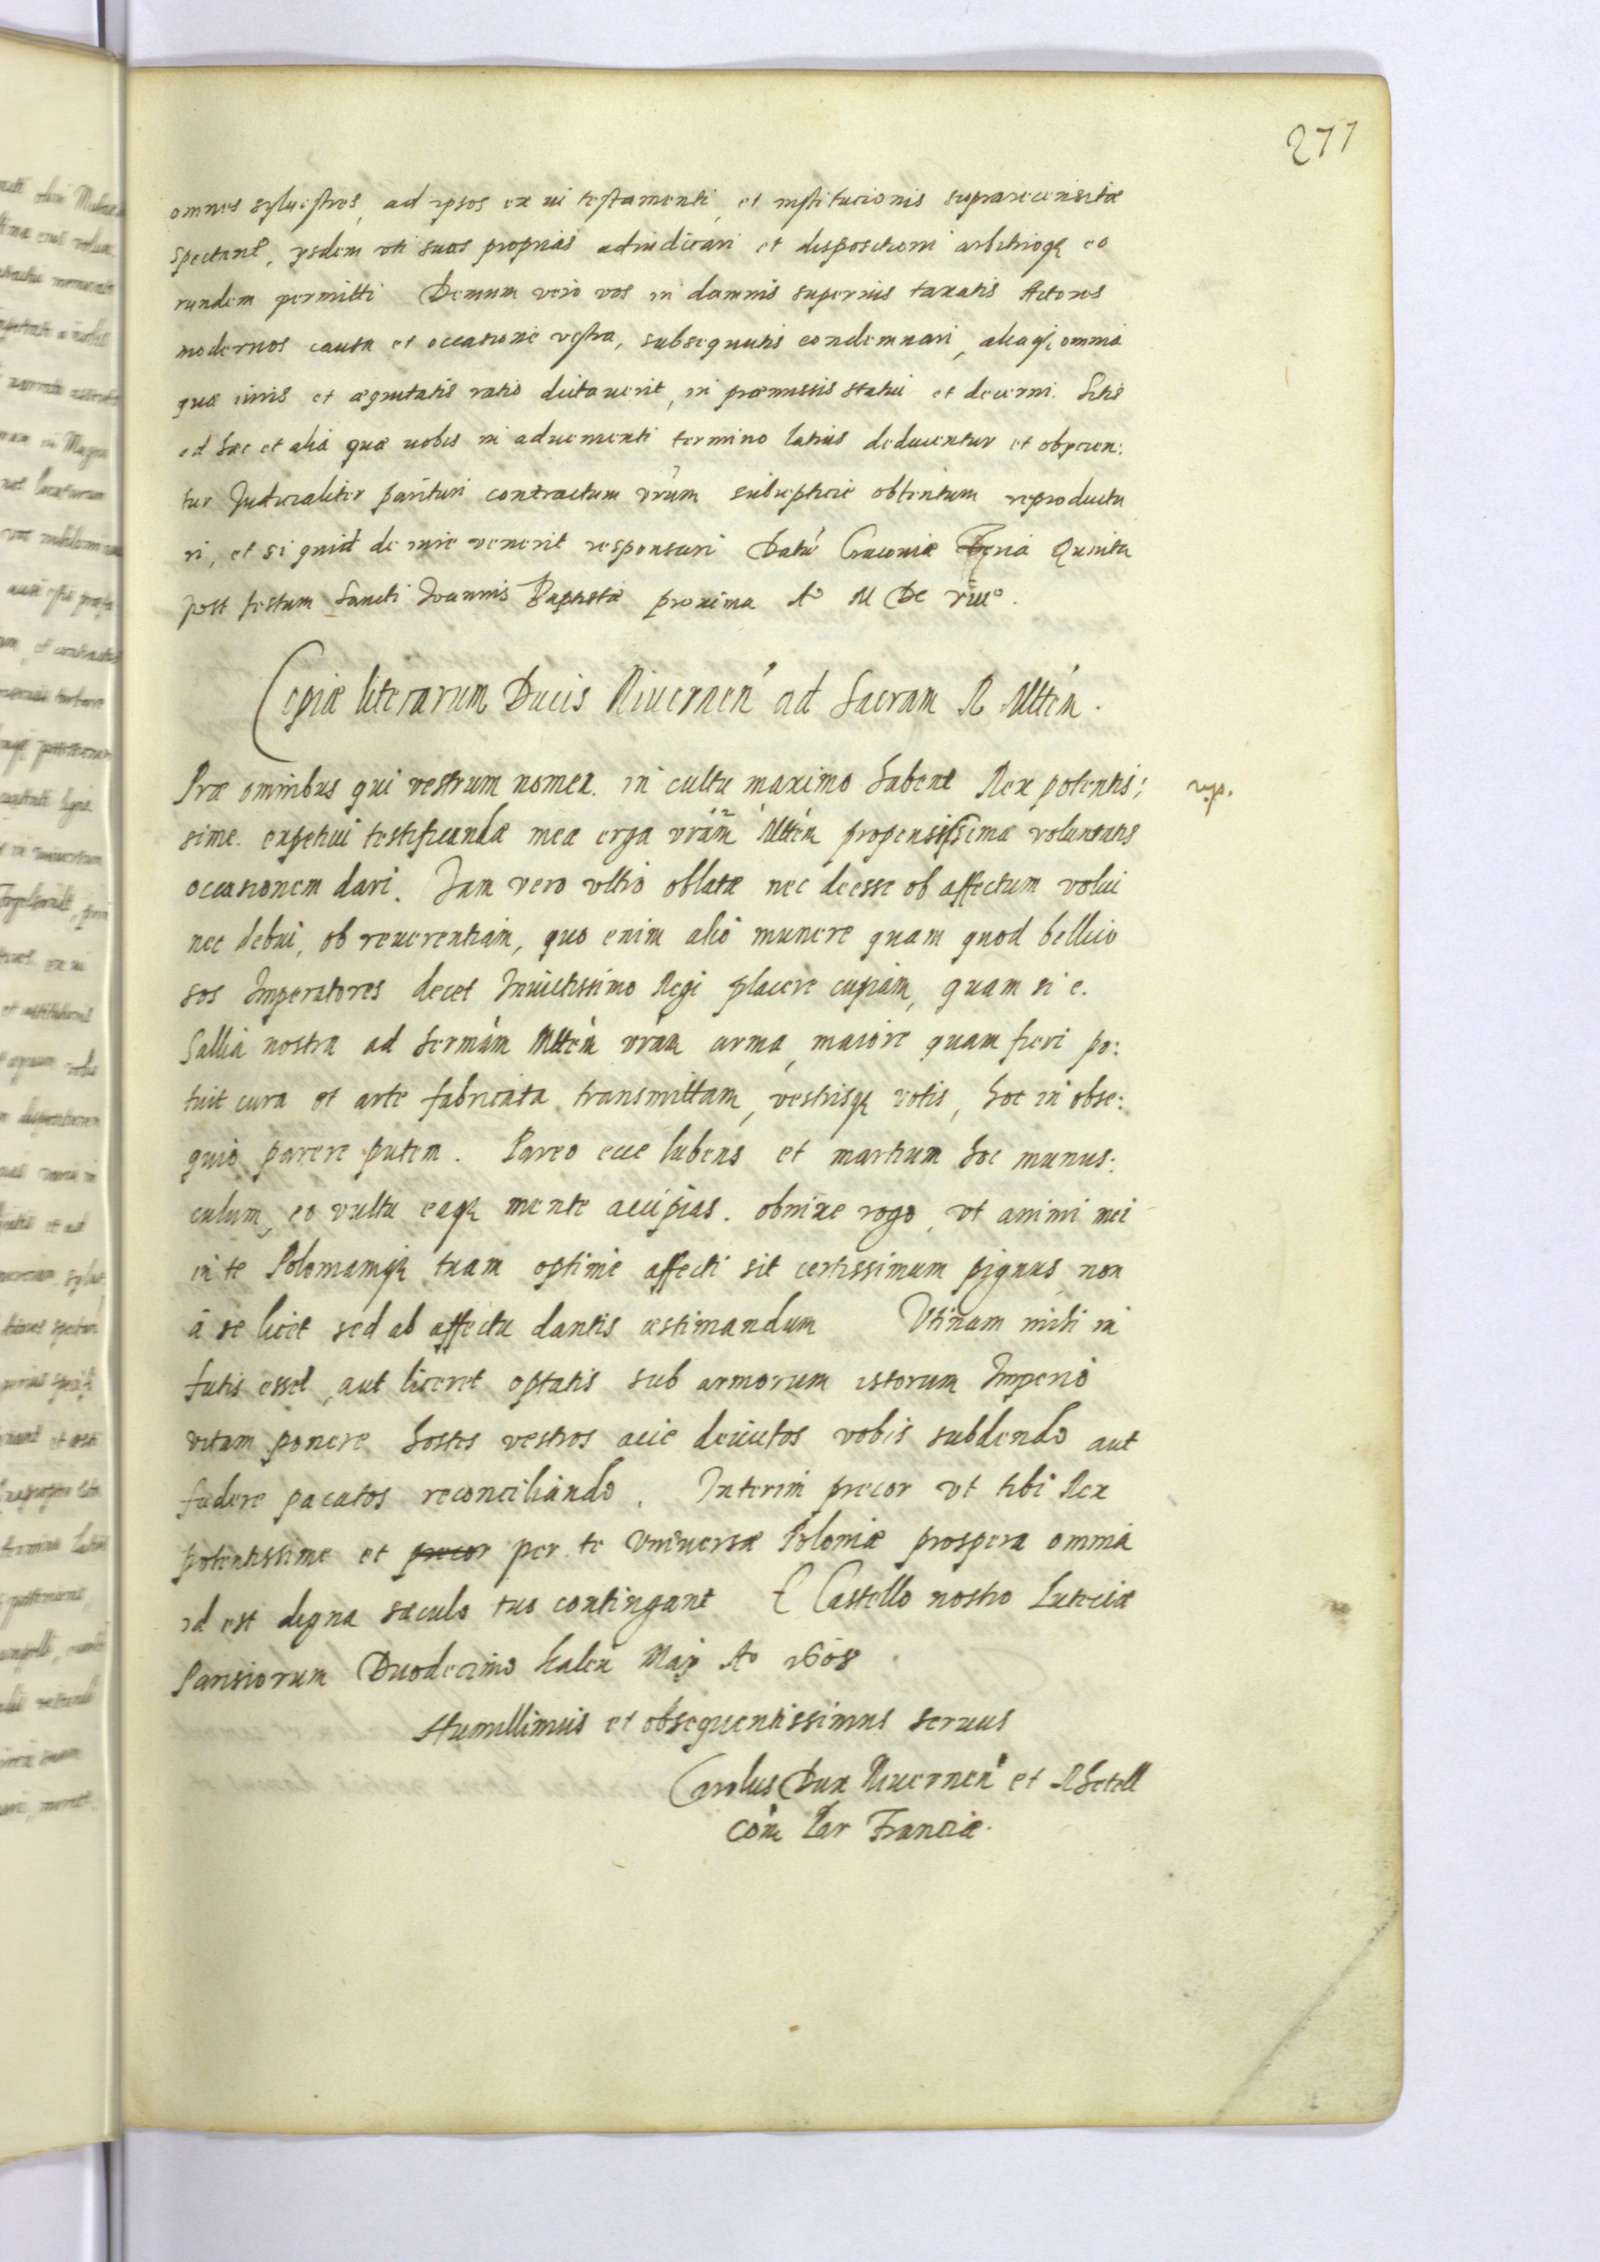 277
omnes sylvestres, ad ipsos ex vi testamenti, et institucionis suprarecensitæ
spectant, ysdem uti suas proprias adiudicari et dispositioni arbitrioq3 eo
rundem permitti Demum vero vos in damnis superius taxatis Actores
modernos causa et occasione vestra, subsequutis condemnari, aliaq3 omnia
quæ iuris et æquitatis ratio dictaverit, in præmissis statui et decerni. Sitis
ad hæc et alia quæ vobis in advenienti termino latius deducentur et obiicien:
tur Judicialiter parituri contractum vrum subrepticie obtentum reproductu
ri, et si quid de iure venerit responsuri Datu Cracoviæ Feria Quinta
post festum Sancti Joannis Baptistæ proxima Ao M DC viiio.
Copiæ literarum Ducis Nivernen ad Sacram R Mttem.
Præ omnibus qui vestrum nomen in cultu maximo habent Rex potentis:
sime expetivi testificandæ meæ erga vram Mttem propensissimæ voluntatis
occasionem dari. Jam vero ultro oblatæ nec deesse ob affectum volui
nec debui, ob reverentiam, quo enim alio munere quam quod bellico
sos Imperatores decet Invictissimo Regi placere cupiam, quam si e
Gallia nostra ad Sermam Mttem vram arma, maiore quam fieri po:
tuit cura et arte fabricata transmittam, vestrisq3 votis, hoc in obse:
quio parere putem. Pareo ecce lubens et martium hoc munus:
culum, eo vultu eaq3 mente accipias. obnixe rogo, ut animi mei
in te Poloniamq3 tuam optime affecti sit certissimum pignus, non
a se licet sed ab affectu dantis æstimandum Utinam mihi in
fatis esset, aut liceret optatis sub armorum istorum Imperio
vitam ponere hostes vestros acie devictos vobis subdendo aut
fædere pacatos reconciliando. Interim precor ut tibi Rex
potentissime et precor per te Universæ Poloniæ prospera omnia
id est digna sæculo tuo contingant E Castello nostro Luteciæ
Parisiorum Duodecimo kalen Maij Ao 1608
Humillimus et obsequentissimus servus
Carolus Dux Nivernen et Rhetell
Com Par Franciæ.